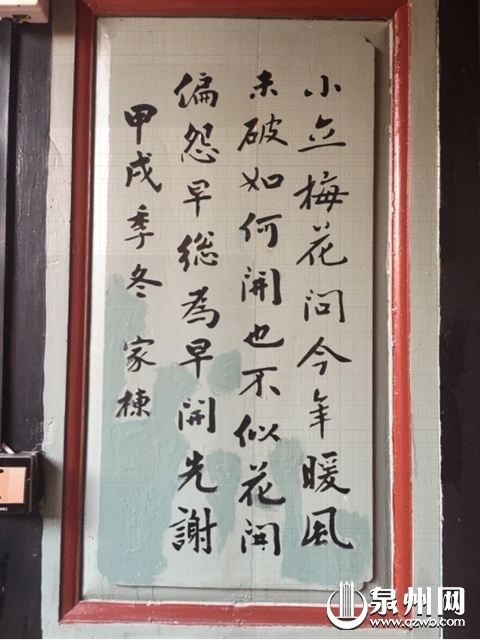 小立梅花问今年暖风
未破如何開也不似花開
偏怨早総為早開先謝
甲戌季冬 家棟
泉州网
www.qzwb.com